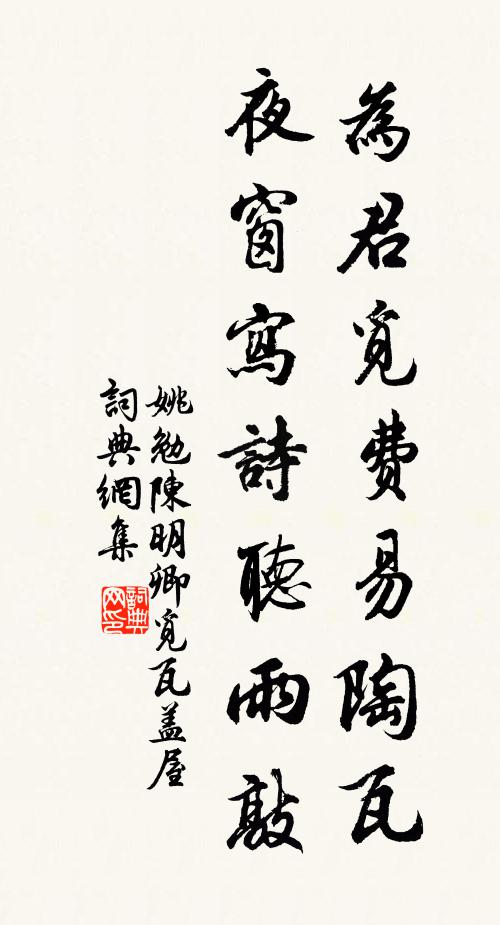 為君覓費易陶瓦
夜窗寫詩聽雨敲
姚勉陳明卿覓瓦蓋屋
詞典網集
詞典网印